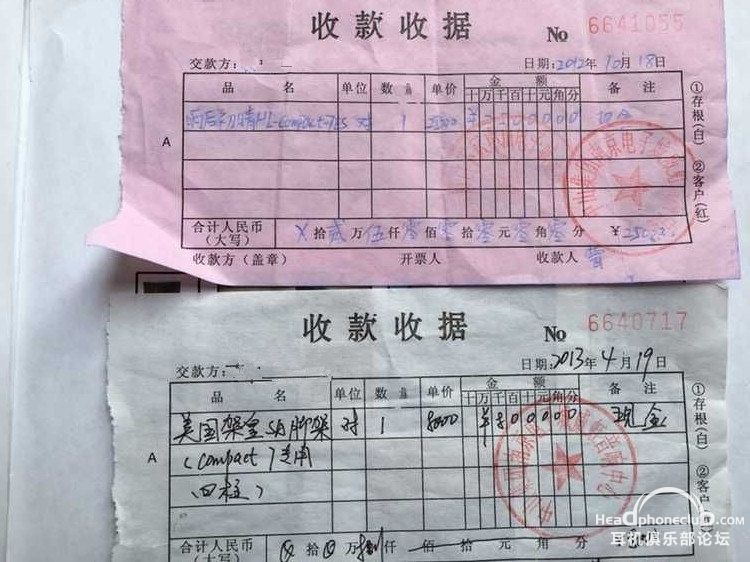 收款收据 No 6641055
交款方： 日期：2012年10月18日
品名 单位 数量 单价 金额 备注
十万千百十元角分
雨后初晴HL-Compact-7ES 对 1 25000 ¥25000000
A
合计人民币（大写） X拾贰万伍仟零佰零拾零元零角零分 ¥
收款方（盖章） 开票人 收款人
①存根(白) ②客户(红)
收款收据 No 6640717
交款方： 日期：2013年4月19日
品名 单位 数量 单价 金额 备注
十万千百十元角分
美国架皇SA脚架 对 1 8000 ¥800000 现金
(Compact)专用
A
(四柱)
合计人民币（大写） 拾 万 捌仟 佰 拾 元 角 分
①存根(白) ②客户
Headphoneclub.com
耳机俱乐部论坛